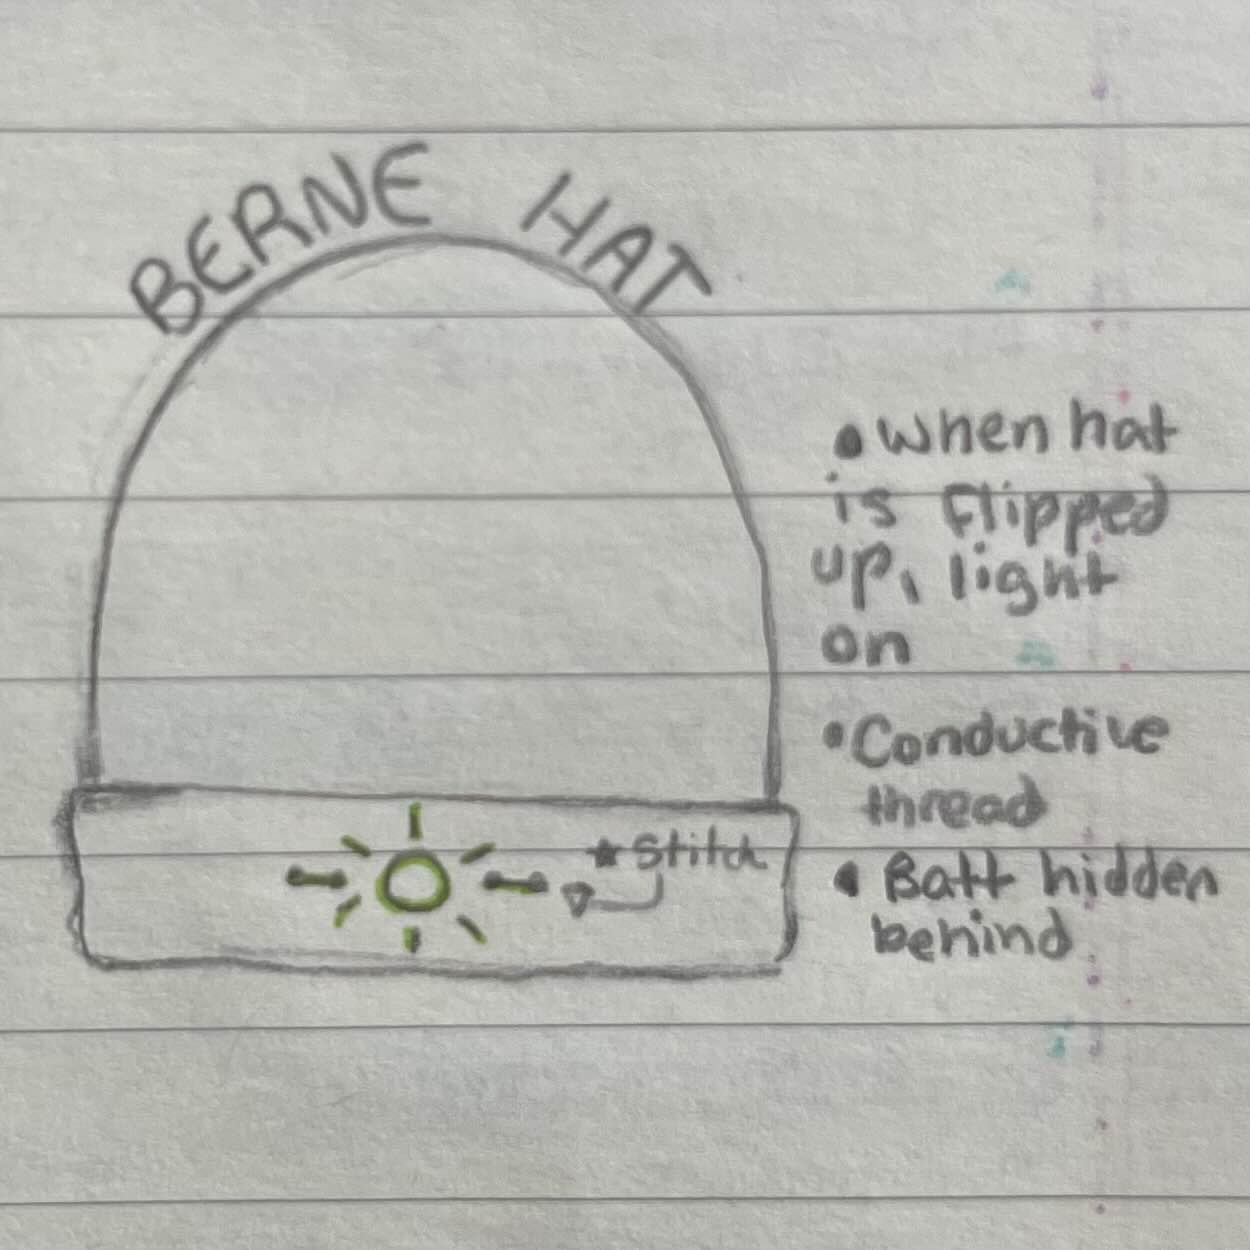 BERNE HAT
• When hat
is flipped
up, light
on
• Conductive
thread
• Batt hidden
behind
★ Stitch